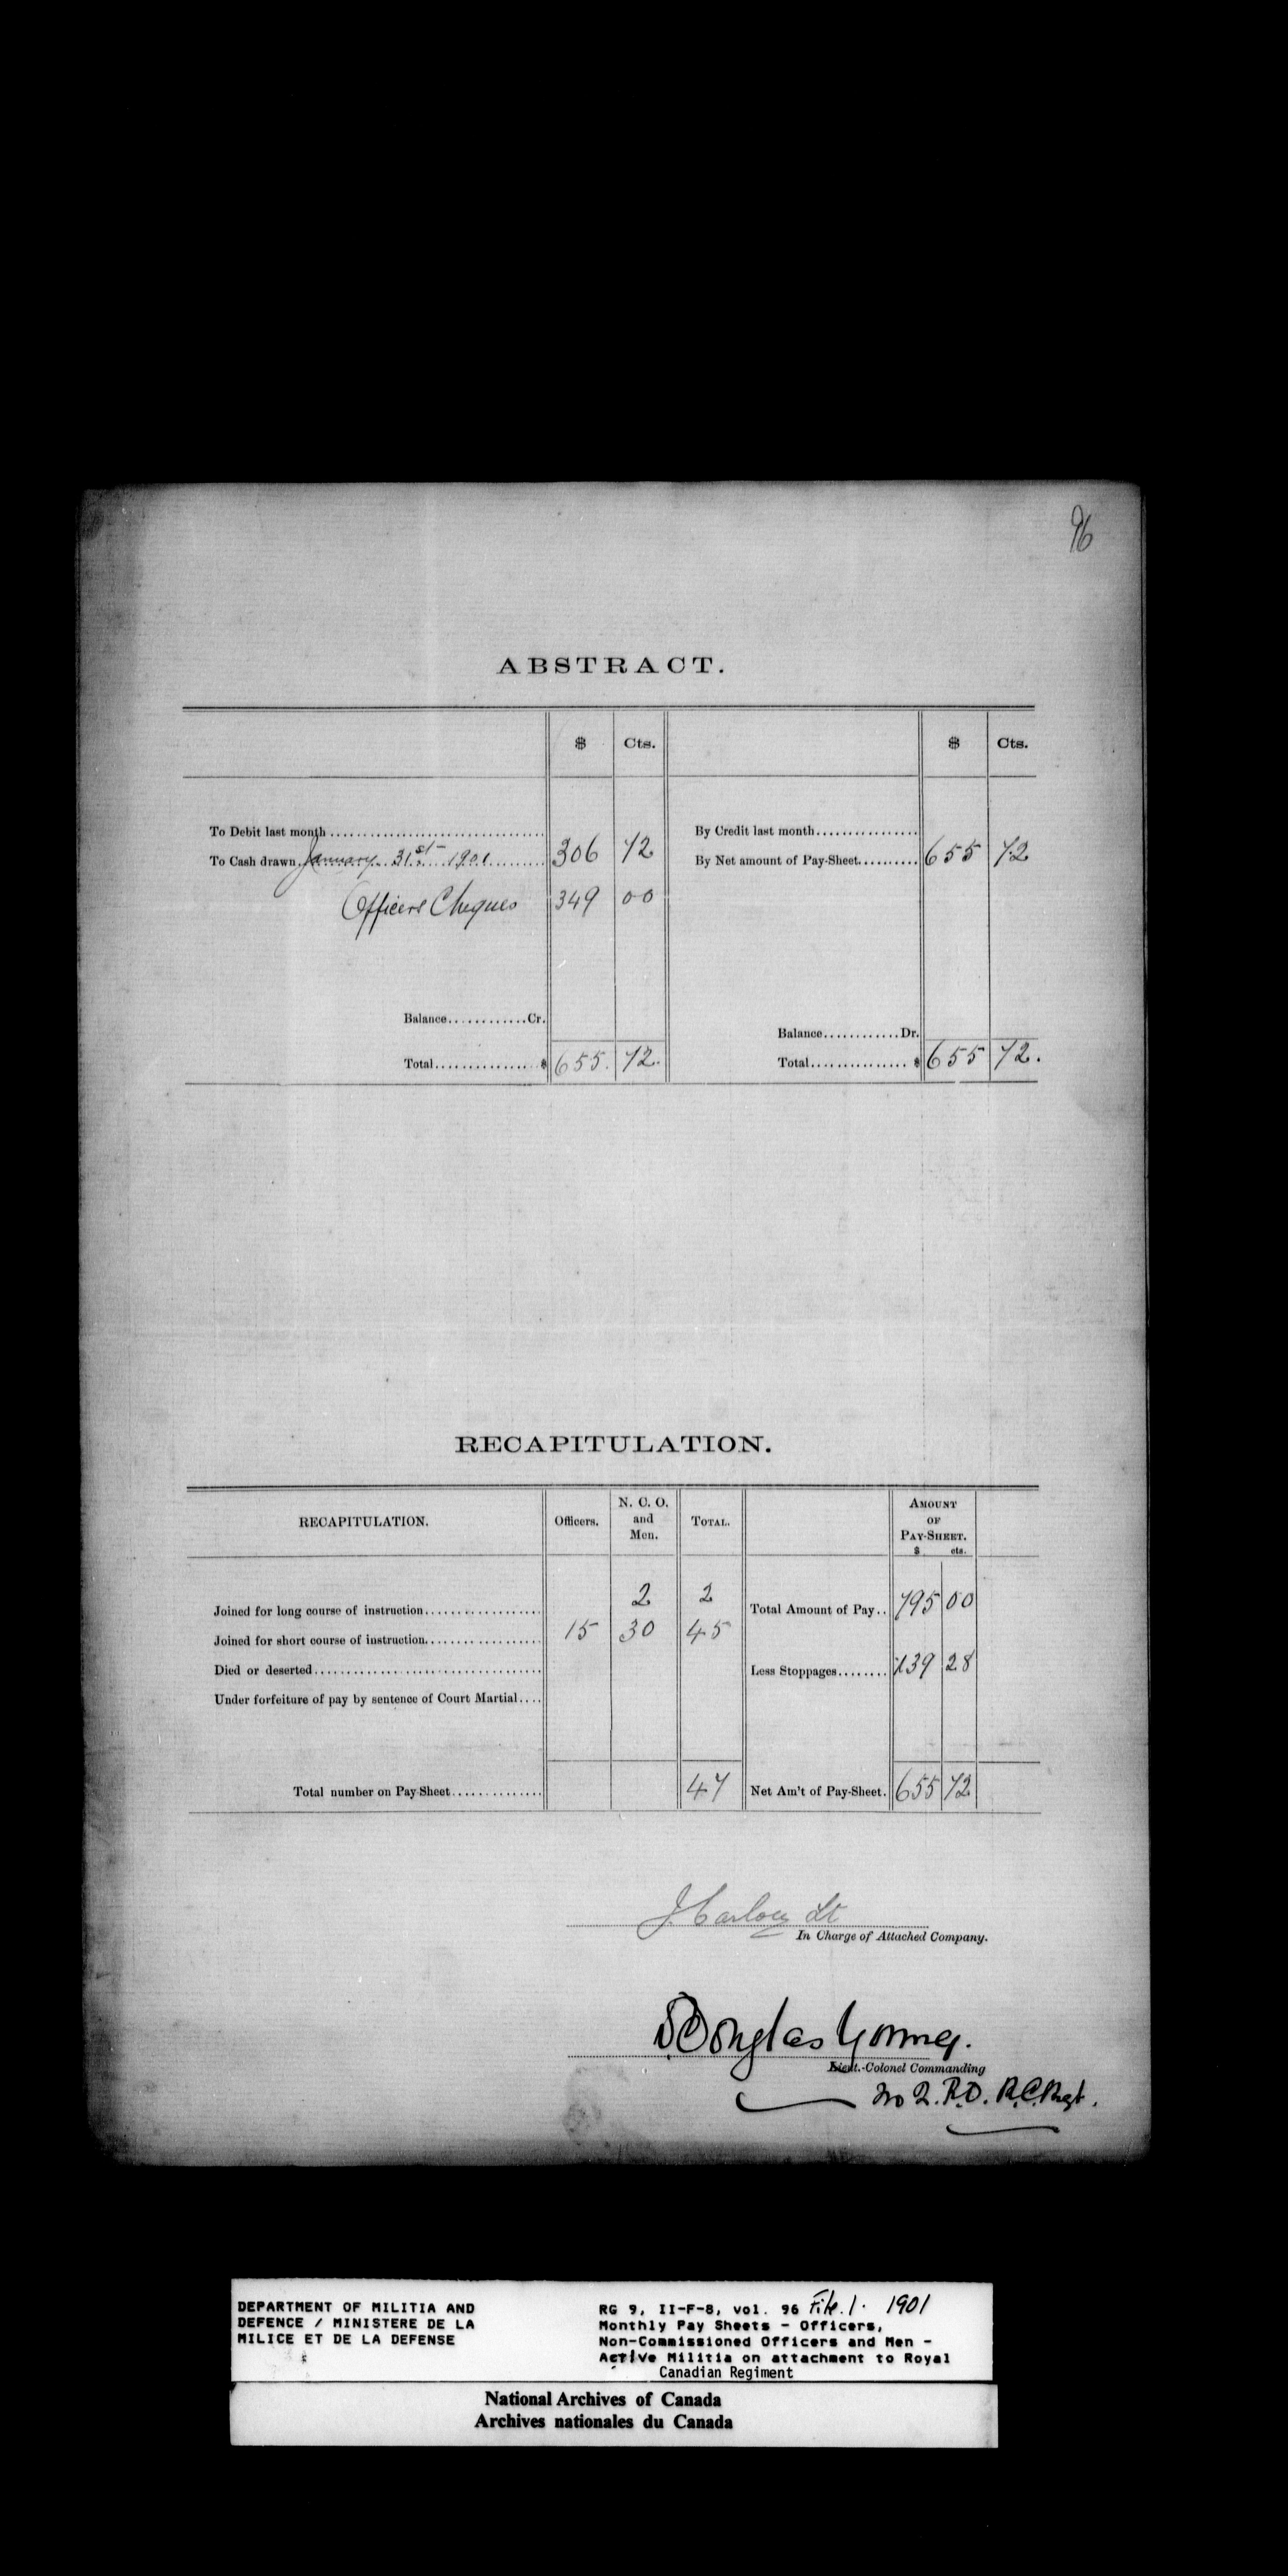 96
ABSTRACT.
$ Cts. $ Cts.
To Debit last month
By Credit last month
To Cash drawn January 31st 1901 306 72
By Net amount of Pay-Sheet 655 72
Officers Cheques 349 00
Balance Cr.
Balance Dr.
Total $ 655. 72.
Total $ 655 72.
RECAPITULATION.
RECAPITULATION. Officers. N. C. O. and Men. TOTAL. AMOUNT OF PAY-SHEET. $ cts.
Joined for long course of instruction 2 2
Total Amount of Pay 795 00
Joined for short course of instruction 15 30 45
Died or deserted
Less Stoppages 139 28
Under forfeiture of pay by sentence of Court Martial
Total number on Pay-Sheet 47
Net Am't of Pay-Sheet. 655 72
Lt
In Charge of Attached Company.
D Douglas Young.
Lieut.-Colonel Commanding
No 2. R.D. R.C.Regt.
DEPARTMENT OF MILITIA AND
DEFENCE / MINISTERE DE LA
MILICE ET DE LA DEFENSE
RG 9, II-F-8, vol. 96 File. 1. 1901
Monthly Pay Sheets - Officers,
Non-Commissioned Officers and Men -
Active Militia on attachment to Royal
Canadian Regiment
National Archives of Canada
Archives nationales du Canada